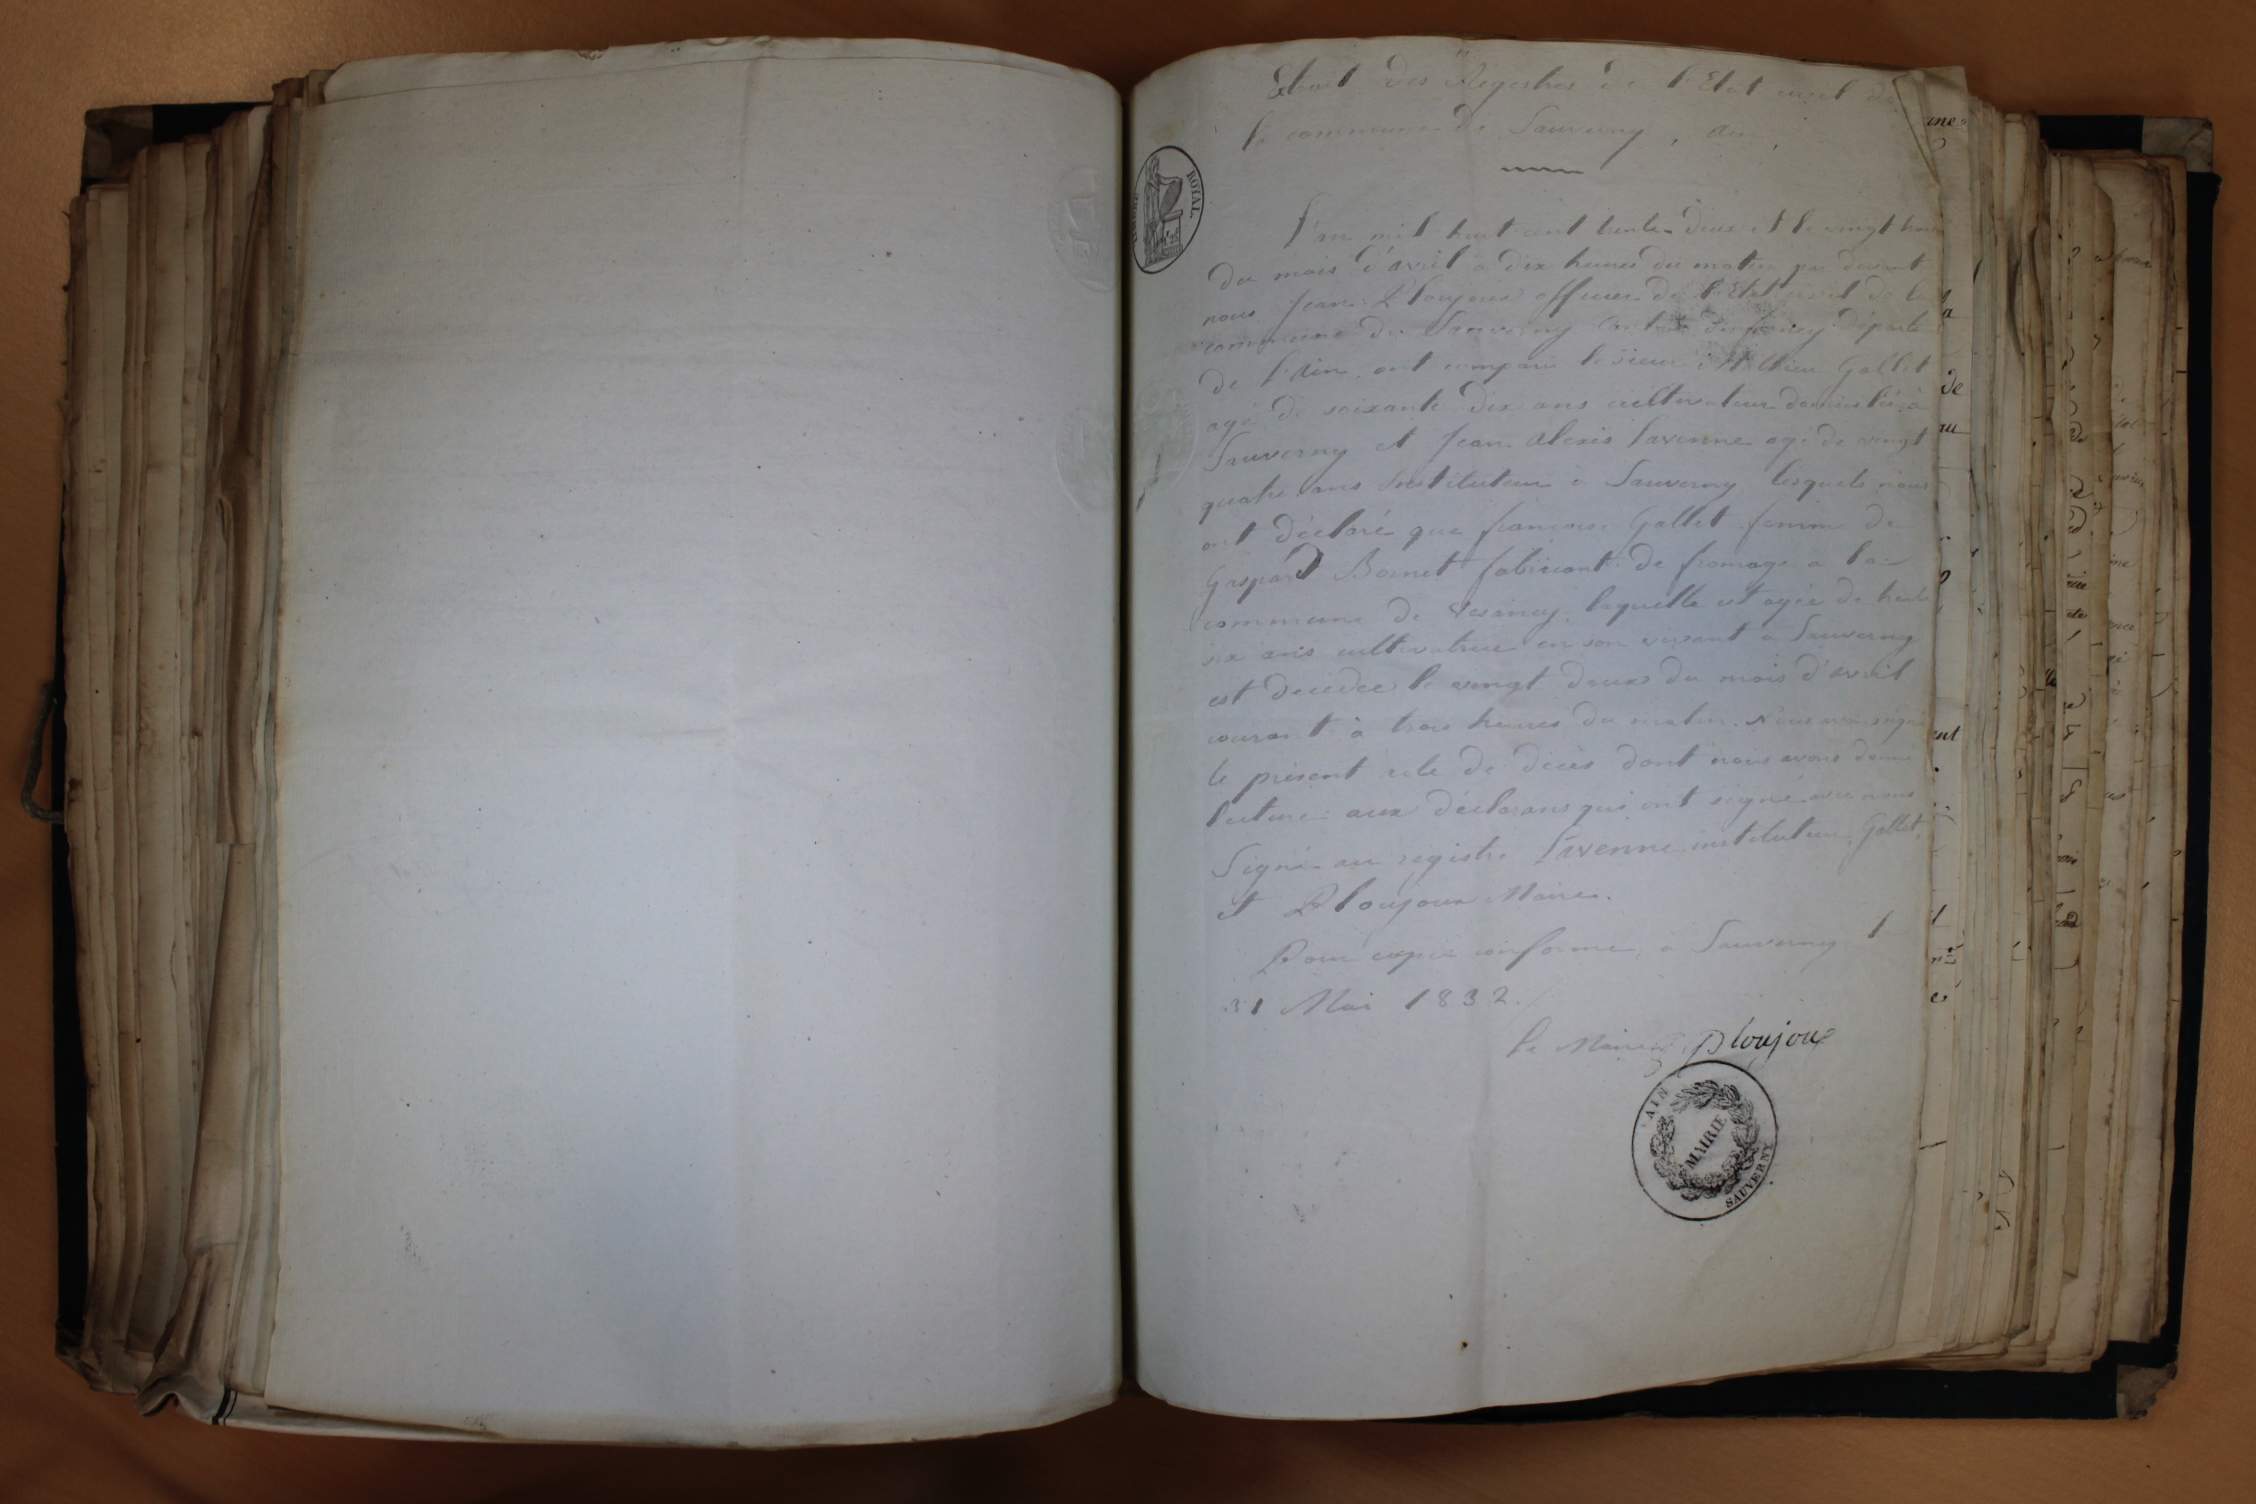 Extrait des Régistres de l'Etat civil de
la commune de Sauverny, Ain,
TIMBRE ROYAL
L'an mil huit cent trente-deux et le vingt trois
du mois d'avril à dix heures du matin par devant
nous Jean Ploujoux officier de l'Etat civil de la
commune de Sauverny Canton de ferney départe
de l'Ain, ont comparu le sieur Gallet
agé de soixante dix ans cultivateur domicilié à
Sauverny et Jean Alexis Lavenne agé de vingt
quatre ans Instituteur à Sauverny lesquels nous
ont déclaré que françoise Gallet femme de
Gaspard Bornet fabricant de fromage a la
commune de Vesancy, laquelle est agée de trente
six ans cultivatrice en son vivant a Sauverny
est décédée le vingt deux du mois d'avril
courant à trois heures du matin. Nous avons signé
le présent acte de décès dont nous avons donné
lecture aux déclarans qui ont signé avec nous
Signé au registre Lavenne instituteur, Gallet,
et Ploujoux Maire.
Pour copie conforme, à Sauverny l
31 Mai 1832.
le Maire Ploujoux
AIN MAIRIE SAUVERNY